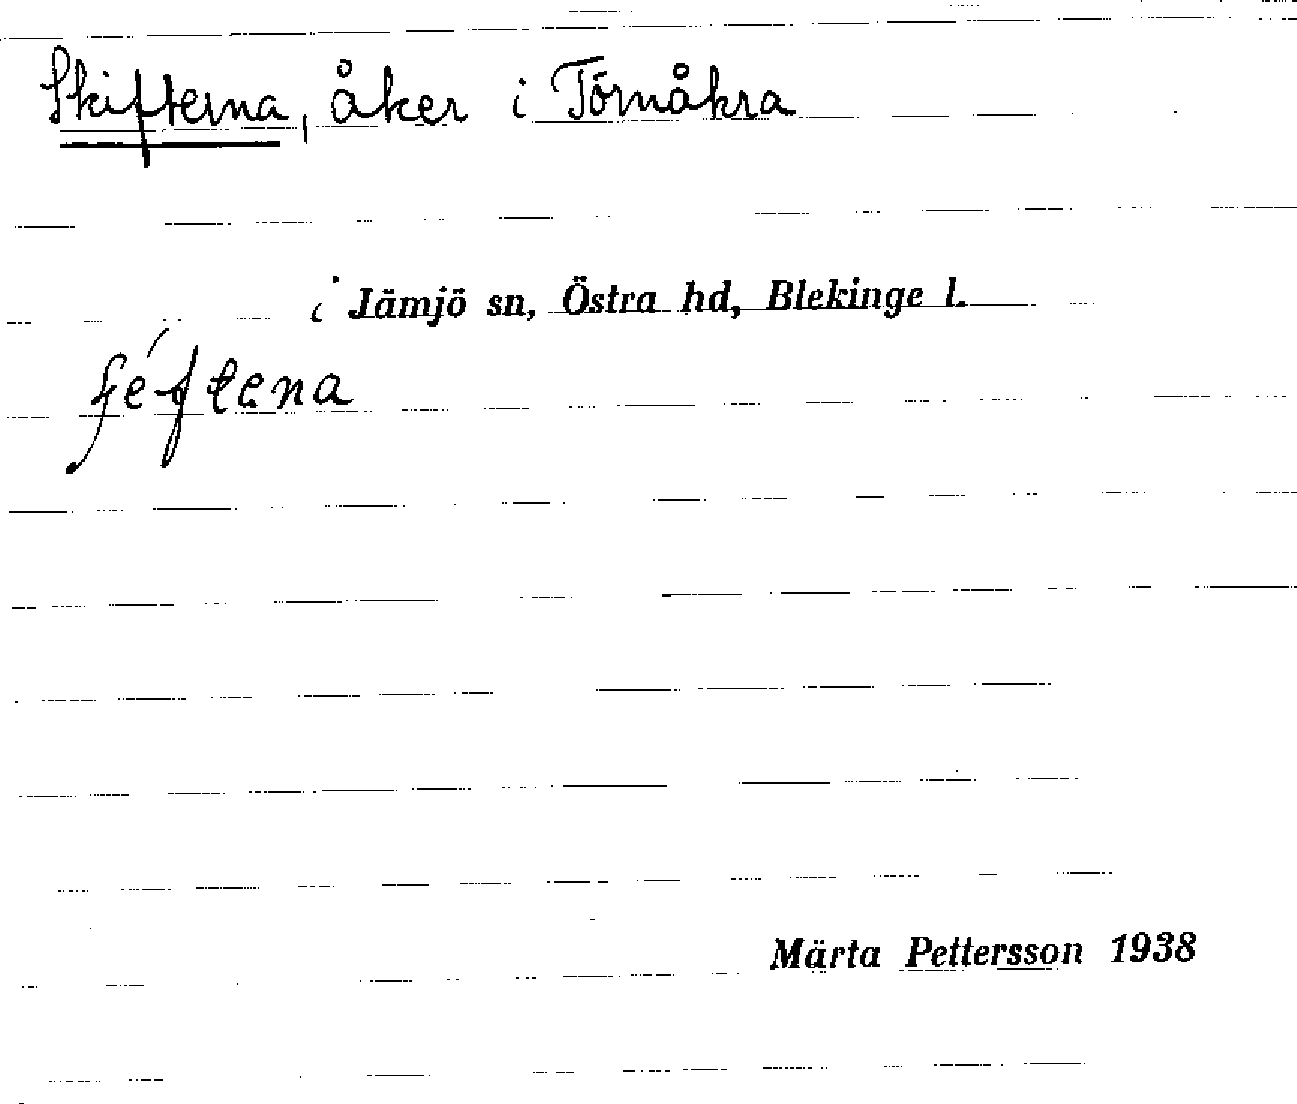 Skifterna, åker i Törnåkra
i Jämjö sn, Östra hd, Blekinge l.
ʃéftena
Märta Pettersson 1938